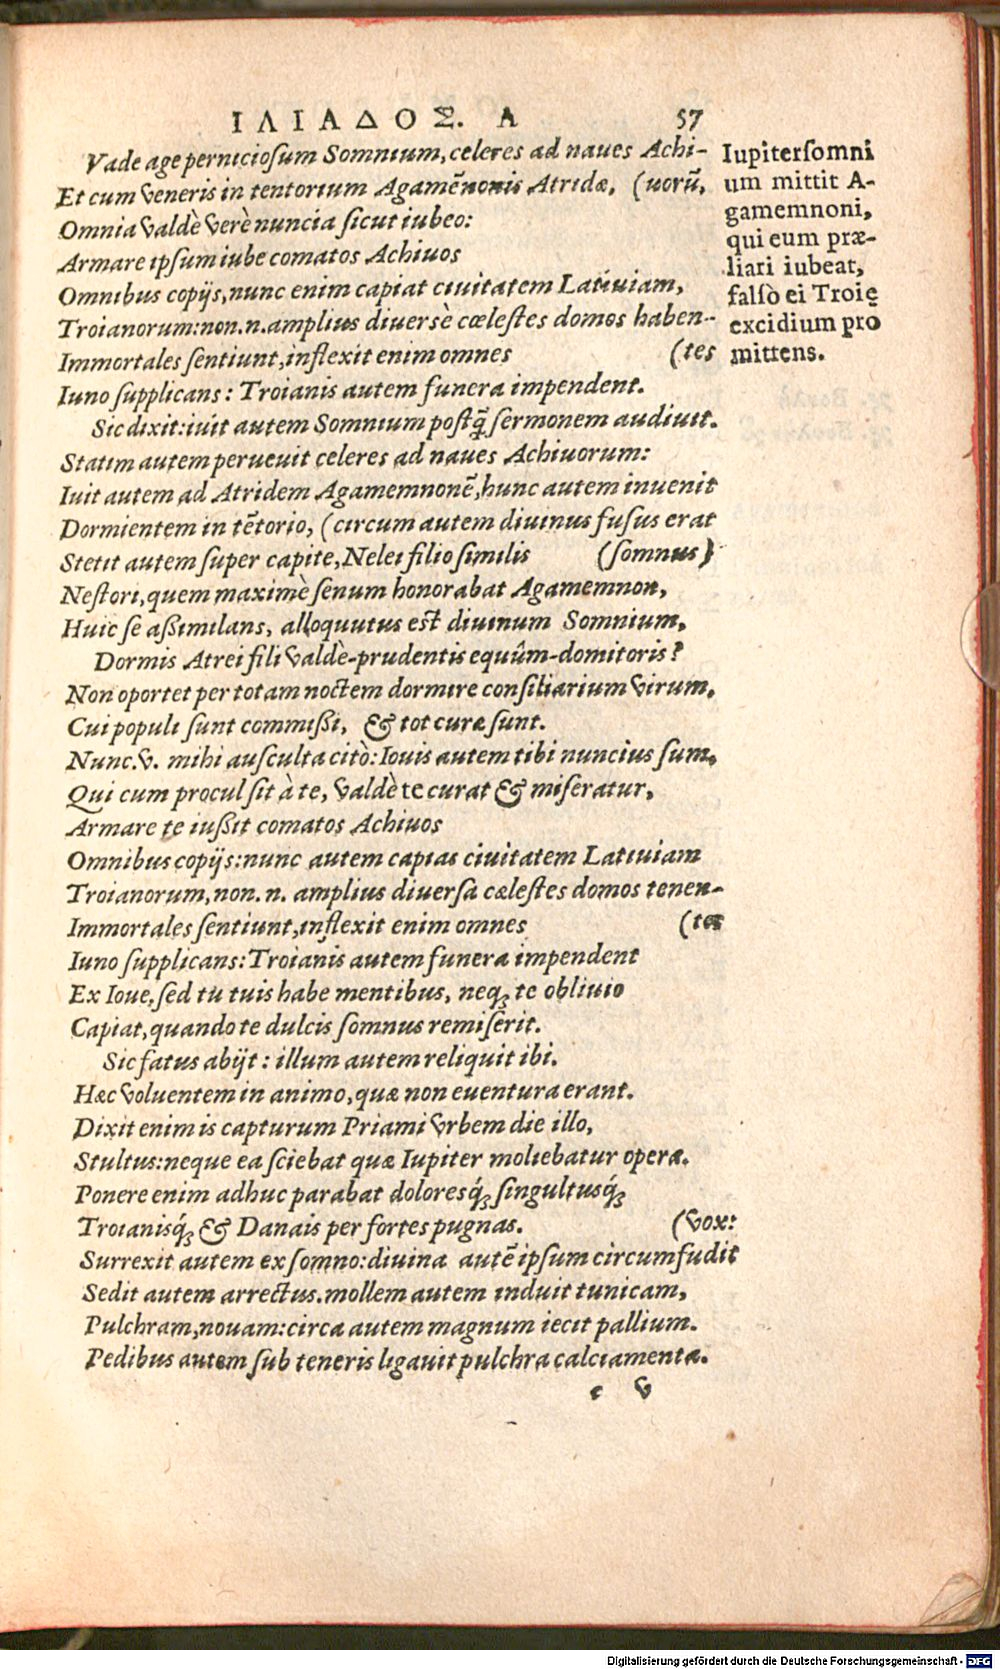 ΙΛΙΑΔΟΣ. Α 57
Vade age perniciosum Somnium, celeres ad naues Achi-
Et cum veneris in tentorium Agamẽnonis Atridæ, (uorũ,
Omnia valdè verè nuncia sicut iubeo:
Armare ipsum iube comatos Achiuos
Omnibus copijs, nunc enim capiat ciuitatem Latiuiam,
Troianorum: non. n. amplius diuersè cœlestes domos haben-
Immortales sentiunt, inflexit enim omnes (tes
Iuno supplicans: Troianis autem funera impendent.
Sic dixit: iuit autem Somnium postq̃ sermonem audiuit.
Statim autem peruenit celeres ad naues Achiuorum:
Iuit autem ad Atridem Agamemnonẽ, hunc autem inuenit
Dormientem in tẽtorio, (circum autem diuinus fusus erat
Stetit autem super capite, Nelei filio similis (somnus)
Nestori, quem maximè senum honorabat Agamemnon,
Huic se aßimilans, alloquutus est diuinum Somnium,
Dormis Atrei fili valdè-prudentis equûm-domitoris?
Non oportet per totam noctem dormire consiliarium virum,
Cui populi sunt commißi, & tot curæ sunt.
Nunc. v. mihi ausculta citò: Iouis autem tibi nuncius sum,
Qui cum procul sit à te, valdè te curat & miseratur,
Armare te iußit comatos Achiuos
Omnibus copijs: nunc autem capias ciuitatem Latiuiam
Troianorum, non. n. amplius diuersa cœlestes domos tenen-
Immortales sentiunt, inflexit enim omnes (tes
Iuno supplicans: Troianis autem funera impendent
Ex Ioue, sed tu tuis habe mentibus, neq; te obliuio
Capiat, quando te dulcis somnus remiserit.
Sic fatus abijt: illum autem reliquit ibi.
Hæc voluentem in animo, quæ non euentura erant.
Dixit enim is capturum Priami vrbem die illo,
Stultus: neque ea sciebat quæ Iupiter moliebatur opera.
Ponere enim adhuc parabat doloresq́; singultusq́;
Troianisq́; & Danais per fortes pugnas. (vox:
Surrexit autem ex somno: diuina autẽ ipsum circumfudit
Sedit autem arrectus. mollem autem induit tunicam,
Pulchram, nouam: circa autem magnum iecit pallium.
Pedibus autem sub teneris ligauit pulchra calciamenta.
c v
Iupiter somni
um mittit A-
gamemnoni,
qui eum præ-
liari iubeat,
falsò ei Troię
excidium pro
mittens.
Digitalisierung gefördert durch die Deutsche Forschungsgemeinschaft - DFG